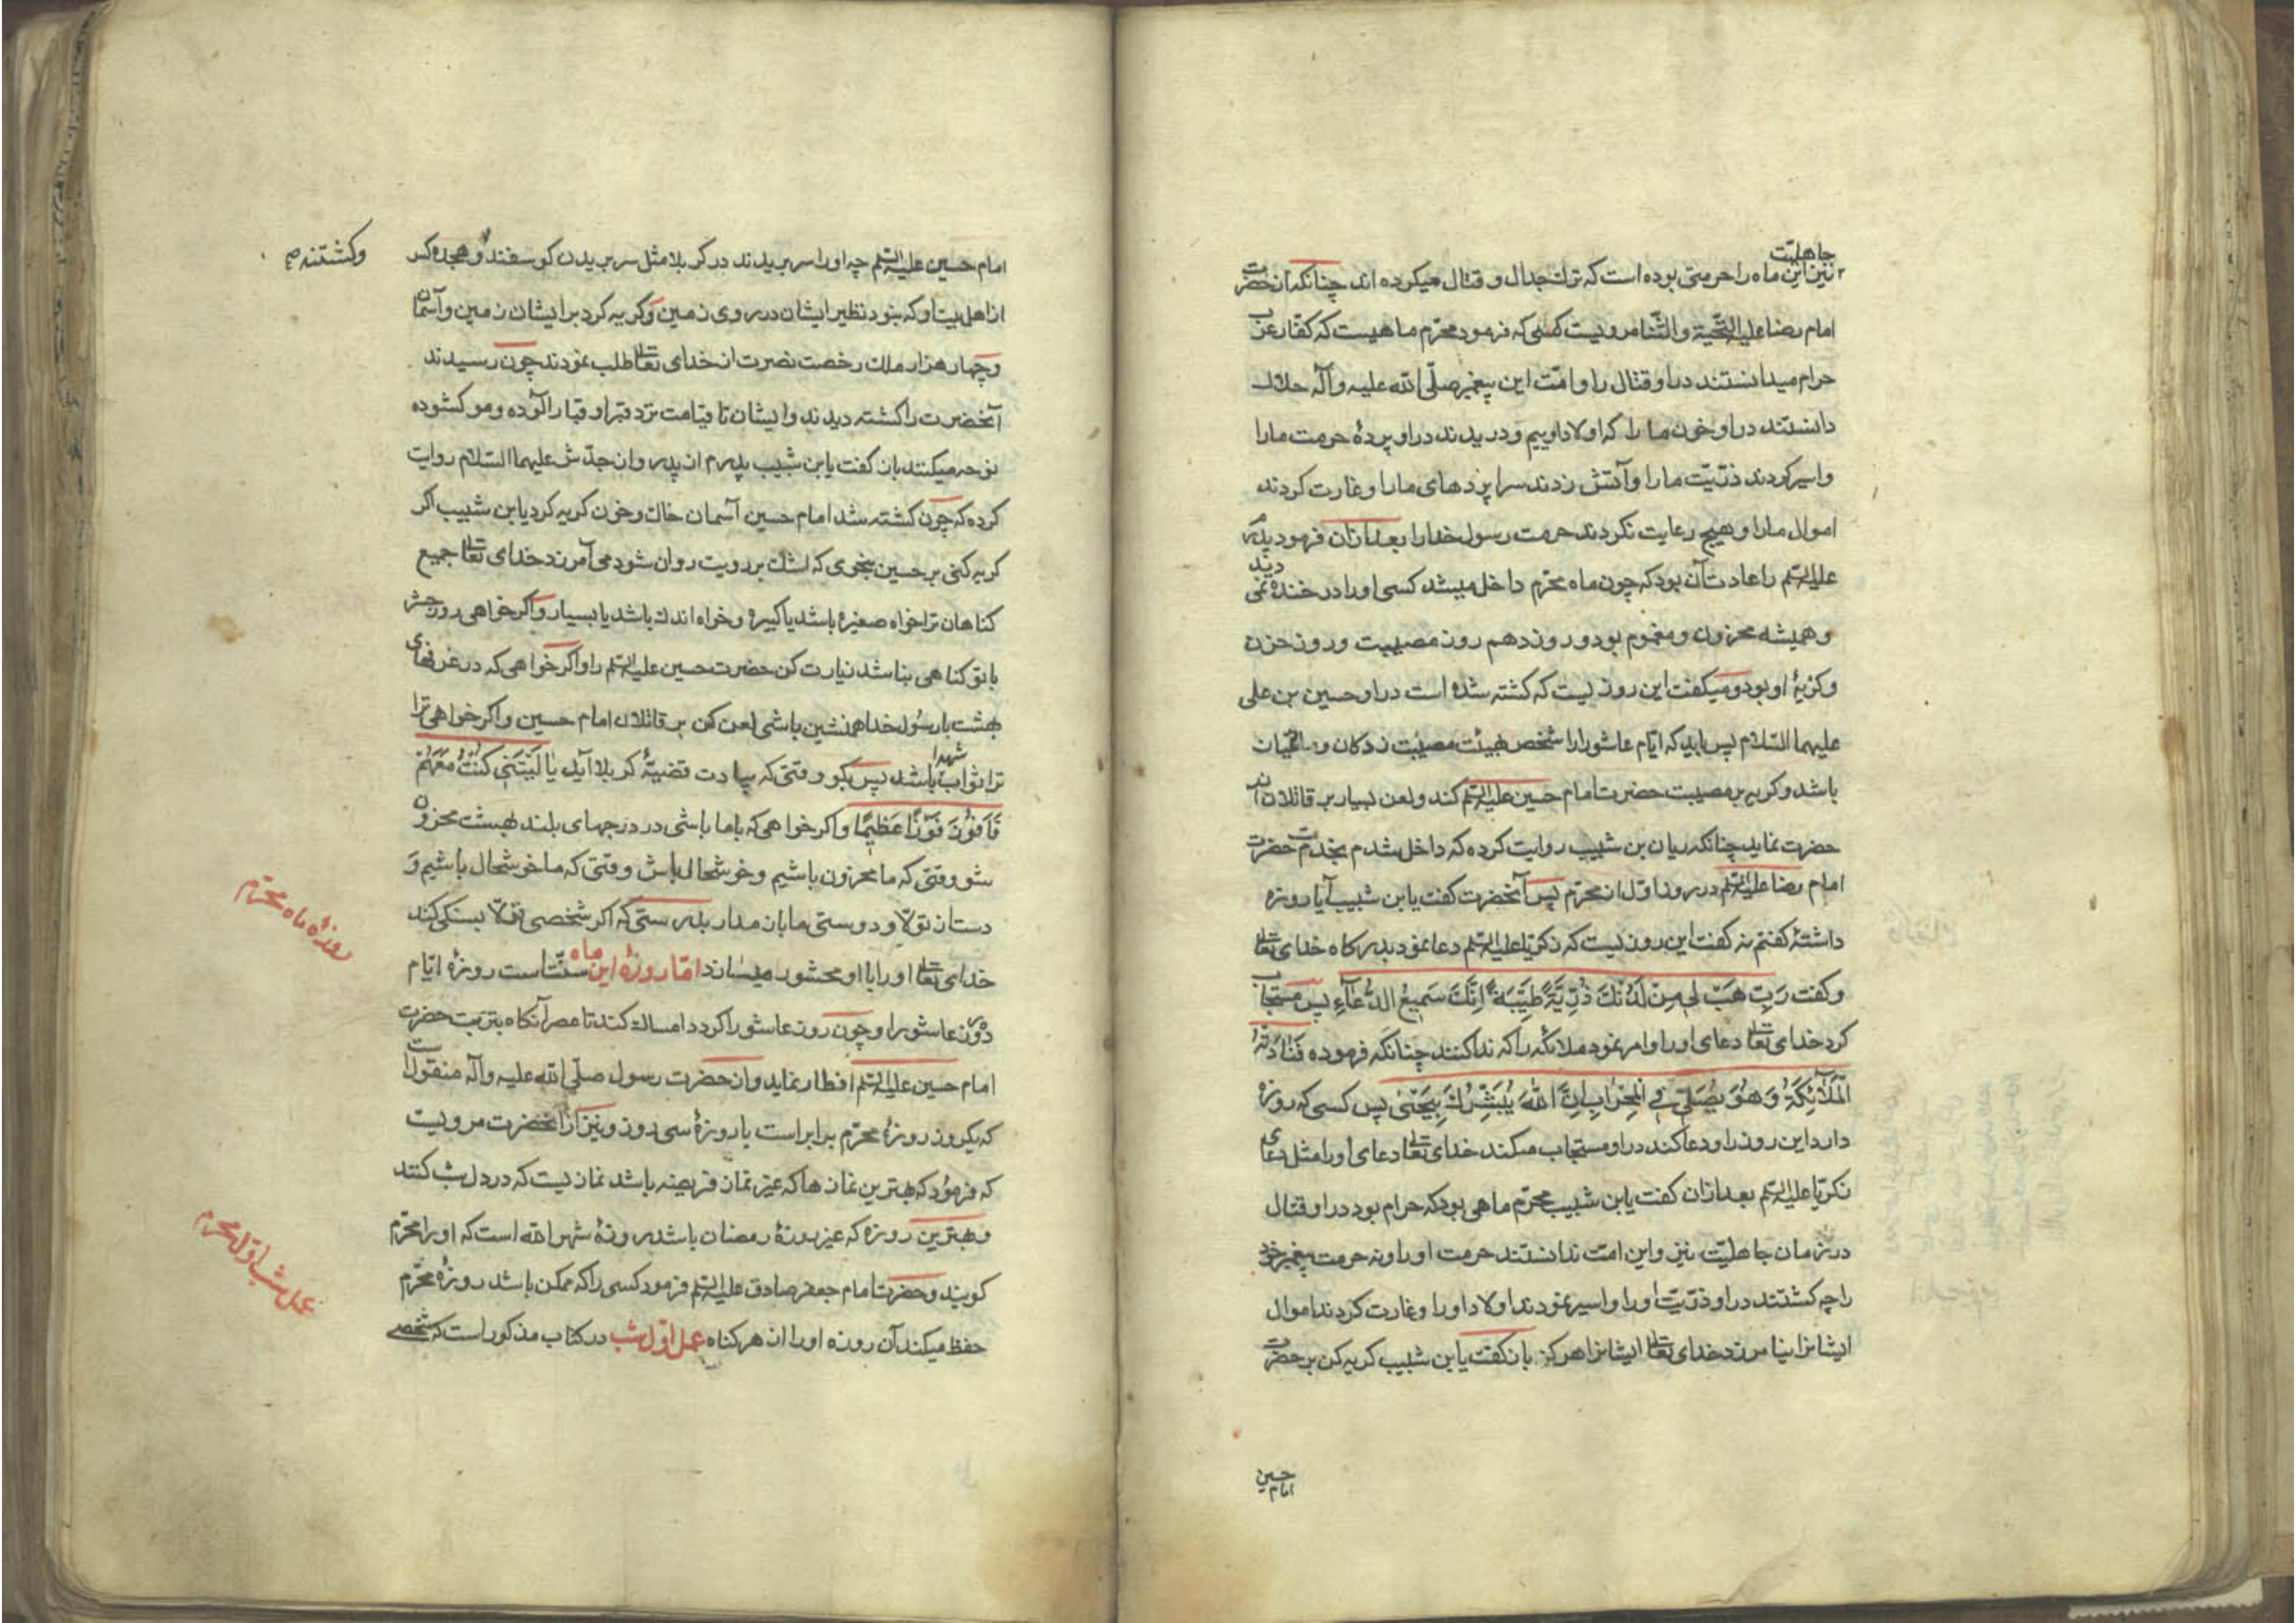 جاهلیّت
نیز این ماه را حرمتی بوده است که ترک جدال و قتال میکرده اند چنانکه از حضرت
امام رضا علیه التّحیّة والثّنا مرویست که فرمود محرّم ماهیست که کفّار عرب
حرام میدانستند در او قتال را و امّت این پیغمبر صلّی الله علیه وآله حلال
دانستند در او خون ما را که اولاد اوییم و دریدند در او پردهٔ حرمت ما را
و اسیر کردند ذرّیّت ما را و آتش زدند سراپردهای ما را و غارت کردند
اموال ما را و هیچ رعایت نکردند حرمت رسول خدا را بعد ازان فرمود پدرم
علیه السّلم را عادت آن بود که چون ماه محرّم داخل میشد کسی او را در خنده نمی دید
و همیشه محزون و مغموم بود و روز دهم روز مصیبت و روز حزن
و کریهٔ او بود و میکفت این روزیست که کشته شده است در او حسین بن علی
علیهما السّلام پس باید که ایّام عاشورا را شخص بهیئت مصیبت زدکان و
باشد و کریه بر مصیبت حضرت امام حسین علیه السّلم کند و لعن بسیار بر قاتلان آن
حضرت نماید چنانکه ریان بن شبیب روایت کرده که داخل شدم بخدمت حضرت
امام رضا علیه السّلم در روز اوّل از محرّم پس آنحضرت کفت یا بن شبیب آیا روزه
داشتهٔ کفتم نه کفت این روزیست که زکریّا علیه السّلم دعا نمود بدرکاه خدای تعالی
و کفت رَبِّ هَبْ لِی مِنْ لَدُنْکَ ذُرِّیَّةً طَیِّبَةً اِنَّکَ سَمِیعُ الدُّعَآءِ پس مستجاب
کرد خدای تعالی دعای او را و امر نمود ملائکه را که ندا کنند چنانکه فرموده فَنَادَتْهُ
الْمَلَآئِکَةُ وَ هُوَ یُصَلِّی فِی الْمِحْرَابِ اِنَّ اللهَ یُبَشِّرُکَ بِیَحْیٰی پس کسی که روزه
دارد این روز را و دعا کند در او مستجاب میکند خدای تعالی دعای او را مثل دعای
زکریّا علیه السّلم بعد ازان کفت یا بن شبیب محرّم ماهی بود که حرام بود در او قتال
در زمان جاهلیّت نیز و این امّت ندانستند حرمت او را و نه حرمت پیغمبر خود
را چه کشتند در او ذرّیّت او را و اسیر نمودند اولاد او را و غارت کردند اموال
ایشانرا نیامرزد خدای تعالی ایشانرا هرکز باز کفت یا بن شبیب کریه کن بر حضرت
امام حسین
امام حسین علیه السّلم چه او را سر بریدند در کربلا مثل سر بریدن کوسفند و هجده کس
و کشتند
از اهل بیت او که نبود نظیر ایشان در روی زمین و کریه کرد بر ایشان زمین و آسمان
و چهار هزار ملک رخصت نصرت از خدای تعالی طلب نمودند چون رسیدند
آنحضرت را کشته دیدند و ایشان تا قیامت نزد قبر او قبار آلوده و مو کشوده
نوحه میکنند باز کفت یا بن شبیب پدرم از پدر و از جدّش علیهما السّلام روایت
کرده که چون کشته شد امام حسین آسمان خاک و خون کریه کرد یا بن شبیب اکر
کریه کنی بر حسین بنحوی که اشک بر رویت روان شود می آمرزد خدای تعالی جمیع
کناهان ترا خواه صغیره باشد یا کبیره و خواه اندک باشد یا بسیار و اکر خواهی روز حشر
با تو کناهی نباشد زیارت کن حضرت حسین علیه السّلم را و اکر خواهی که در غرفهای
بهشت با رسول خدا همنشین باشی لعن کن بر قاتلان امام حسین و اکر خواهی ترا
ترا ثواب شهدا باشد پس بکو وقتی که بیادت قضیّهٔ کربلا آید یَا لَیْتَنِی کُنْتُ مَعَهُمْ
فَاَفُوزَ فَوْزًا عَظِیمًا و اکر خواهی که با ما باشی در درجهای بلند بهشت محزون
شو وقتی که ما محزون باشیم و خوشحال باش وقتی که ما خوشحال باشیم و
دست از تولّا و دوستی ما باز مدار بدرستی که اکر شخصی تولّا بسنکی کند
خدای تعالی او را با او محشور میسازد امّا روزهٔ این ماه سنّت است روزهٔ ایّام
روزهٔ ماه محرّم
دهه عاشورا و چون روز عاشورا کردد امساک کند تا عصر آنکاه بتربت حضرت
امام حسین علیه السّلم افطار نماید و از حضرت رسول صلّی الله علیه وآله منقولست
که یکروز روزهٔ محرّم برابر است با روزهٔ سی روز و نیز از آنحضرت مرویست
که فرمود که بهترین نمازها که غیر نماز فریضه باشد نمازیست که در دل شب کنند
و بهترین روزه که غیر روزهٔ رمضان باشد روزهٔ شهر الله است که او را محرّم
کویند و حضرت امام جعفر صادق علیه السّلم فرمود کسی را که ممکن باشد روزهٔ محرّم
عمل شب اوّل محرم
حفظ میکند آن روزه او را از هر کناه عمل اوّل شب در کتاب مذکور است که شخصی